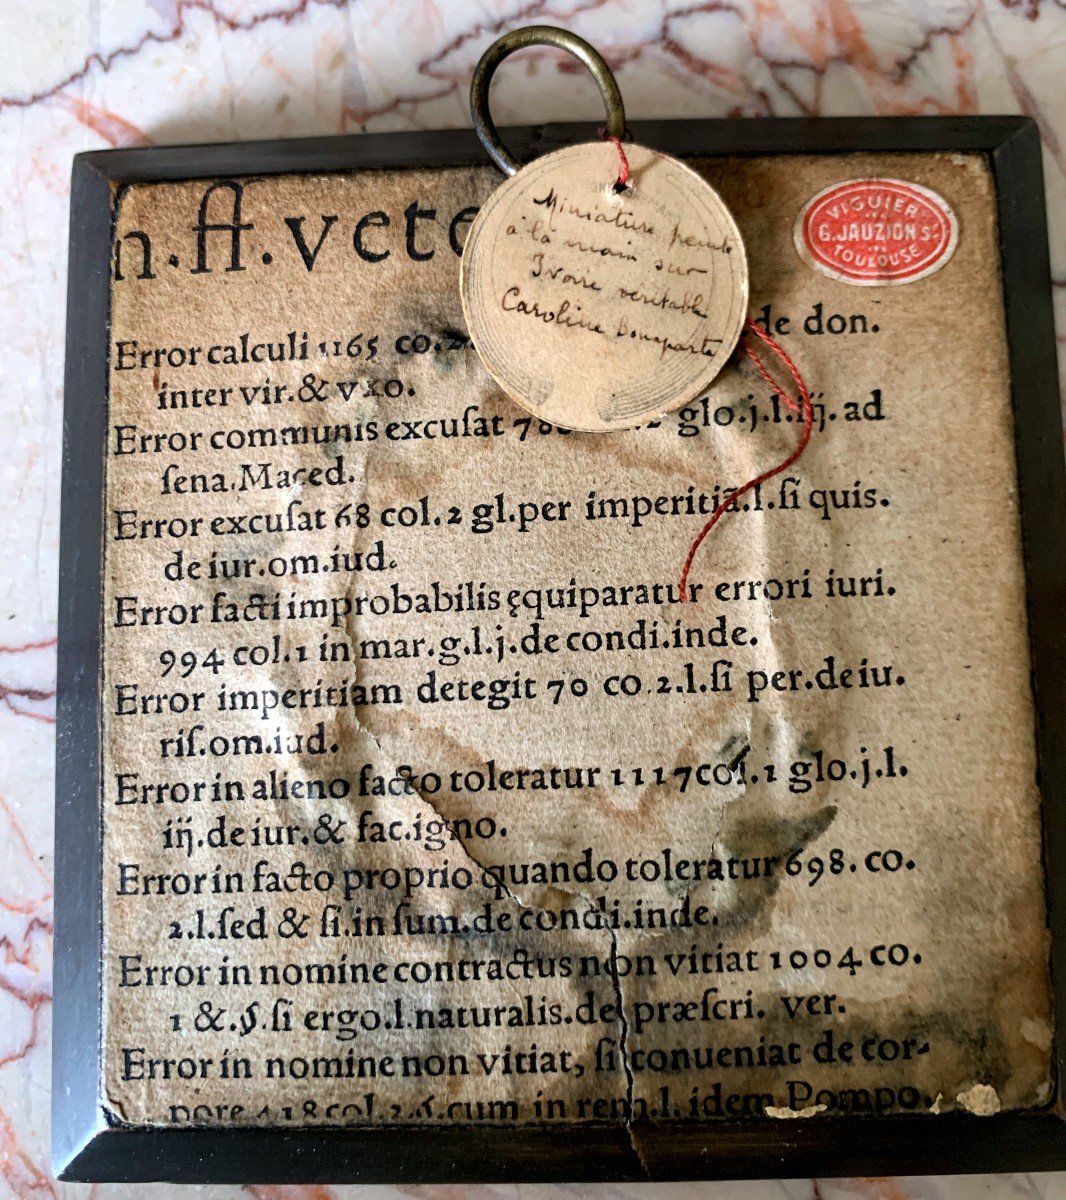 n.ff.vete
Miniature peinte
à la main sur
Ivoire veritable
Caroline Bonaparte
VIGUIER
G. JAUZION Sr
TOULOUSE
Error calculi 1165 co.2 de don.
inter vir.& vxo.
Error communis excuſat glo.j.l.iij. ad
ſena.Maced.
Error excuſat 68 col.2 gl.per imperitiā.l.ſi quis.
de iur.om.iud.
Error facti improbabilis ęquiparatur errori iuri.
994 col.1 in mar.g.l.j.de condi.inde.
Error imperitiam detegit 70 co.2.l.ſi per.de iu.
riſ.om.iud.
Error in alieno facto toleratur 1117col.1 glo.j.l.
iij.de iur.& fac.igno.
Error in facto proprio quando toleratur 698. co.
2.l.ſed & ſi.in ſum.de condi.inde.
Error in nomine contractus non vitiat 1004 co.
1 &.§.ſi ergo.l.naturalis.de præſcri. ver.
Error in nomine non vitiat, ſi conueniat de cor-
pore 418 col.2.§.cum in rem.l.idem Pompo.